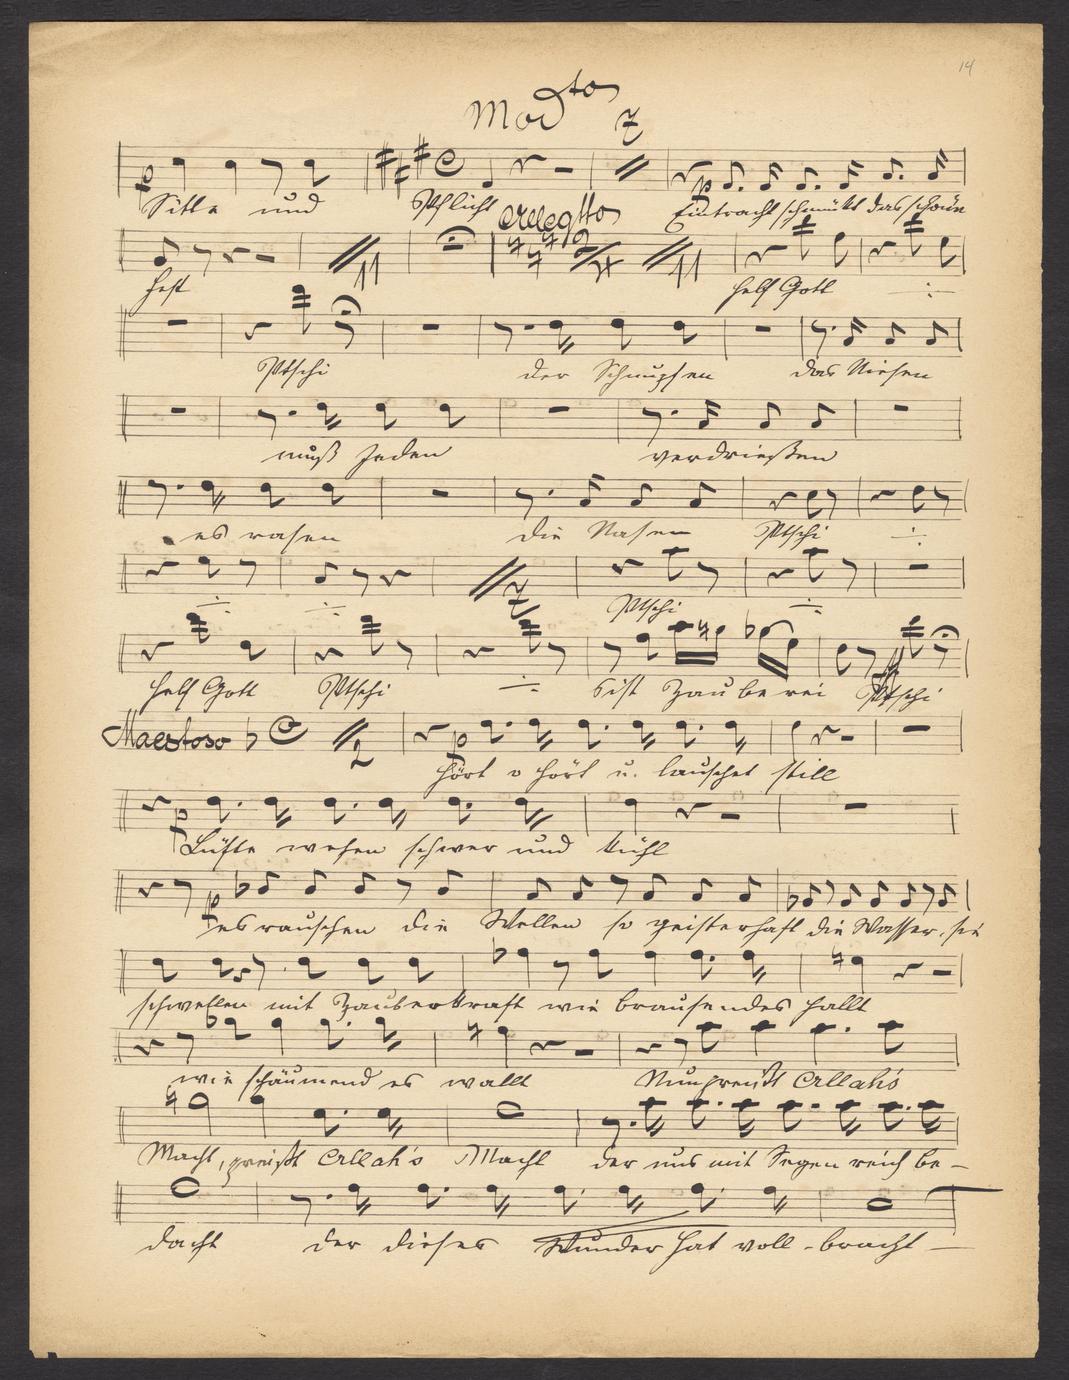 14
Modto
7
Sitte und Pflicht Eintracht schmückt das schöne
p p
Allegtto
Fest Helf Gott ·/·
11 2/4 11
Ptschi der Schnupfen das Niesen
muß Jeden verdrießen
es rasen die Nasen Ptschi ·/·
7
·/· ·/· Ptschi ·/·
Helf Gott Ptschi ·/· S'ist Zauberei Ptschi
ff
Maestoso 2 p
Hört o hört u. lauschet still
p
Lüfte wehen schwer und kühl
p
es rauschen die Wellen so geisterhaft die Wasser, sie
schwellen mit Zauberkraft wie brausendes hallt
wie schäumend es wallt Nun preißt Allah's
Macht, preißt Allah's Macht der uns mit Segen reich be-
dacht der dieses Wunder hat voll-bracht